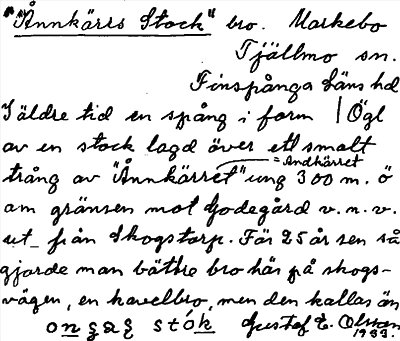 "Ånnkärrs Stock" bro. Markebo
Tjällmo sn.
Finspånga läns hd
I äldre tid en spång i form | Ögl
av en stock lagd över ett smalt
= Andkärret
trång av "Ånnkärret" ung 300 m. ö
om gränsen mot Godegård v.n.v.
ut från Skogstorp. För 25 år sen så
gjorde man bättre bro här på skogs-
vägen, en kavelbro, men den kallas än
stók Gustaf E. Olsson
1933.